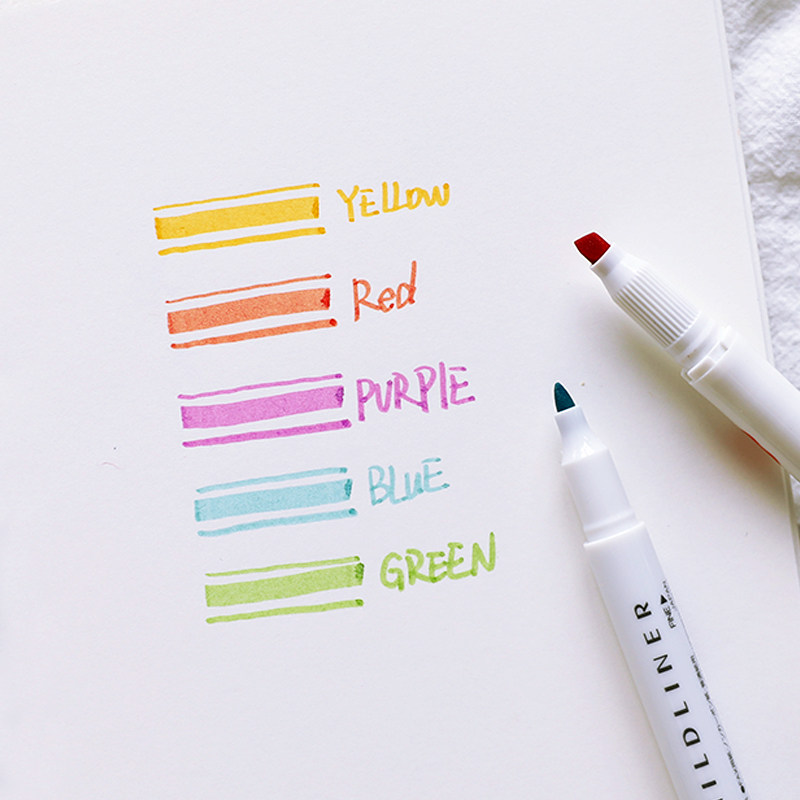 YELLOW
Red
PURPLE
BLUE
GREEN
ILDLINER
FINE